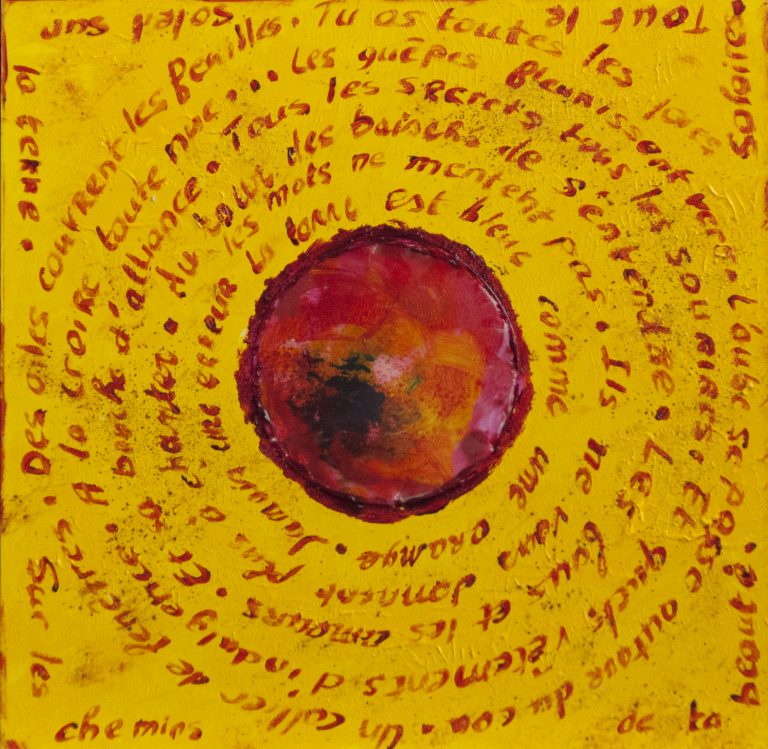 La terre est bleue comme une orange.
Jamais une erreur les mots ne mentent pas.
Ils ne vous donnent plus à chanter.
Au tour des baisers de s'entendre.
Les fous et les amours.
Et sa bouche d'alliance.
Tous les secrets tous les sourires.
Et quels vêtements d'indulgence.
A la croire toute nue...
Les guêpes fleurissent vert.
L'aube se passe autour du cou.
Un collier de fenêtres.
Des ailes couvrent les feuilles.
Tu as toutes les joies solaires.
Tout le soleil sur la terre.
Sur les chemins de ta beauté.